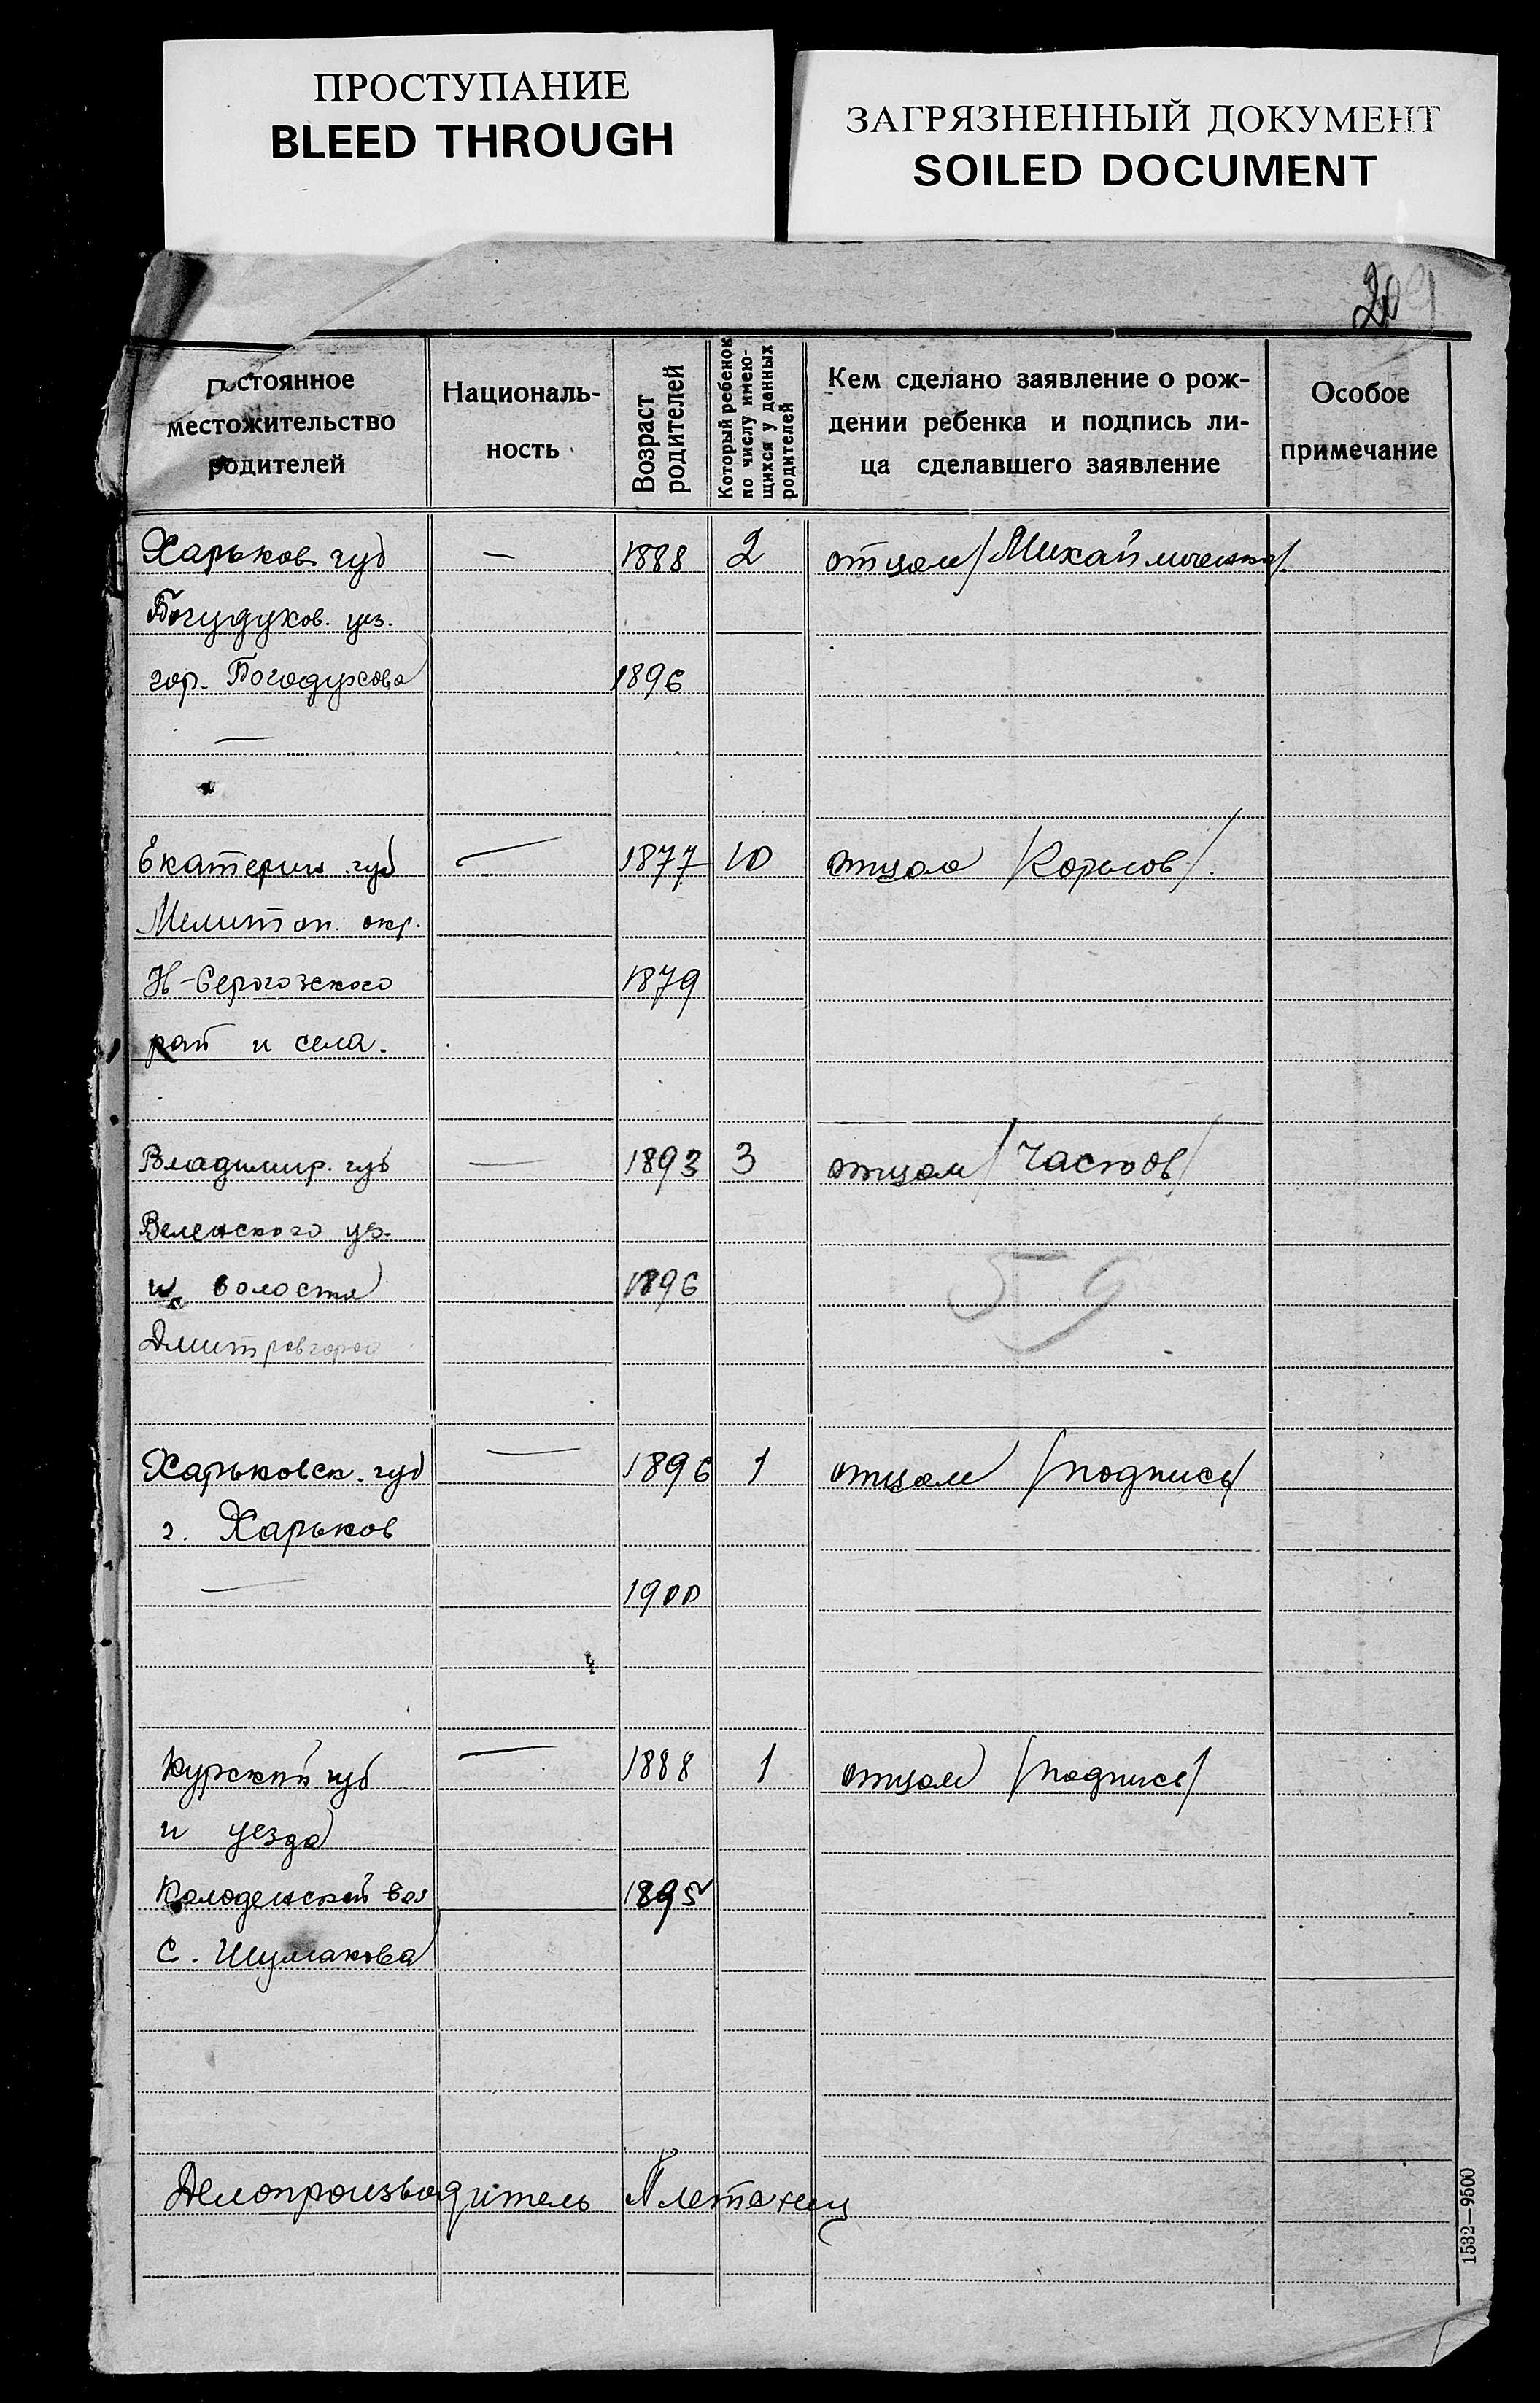 ПРОСТУПАНИЕ
BLEED THROUGH
ЗАГРЯЗНЕННЫЙ ДОКУМЕНТ
SOILED DOCUMENT
209
Постоянное
местожительство
родителей
Националь-
ность
Возраст
родителей
Который ребенок
по числу имею-
щихся у данных
родителей
Кем сделано заявление о рож-
дении ребенка и подпись ли-
ца сделавшего заявление
Особое
примечание
Харьков. губ — 1888 2 отцом /Михайличенко/
Богудухов. уез.
гор. Богодухова 1896
—
Екатерин. губ — 1877 10 отцом /Корнов/.
Мелитоп. окр.
Н-Серогозского 1879
рай и села.
Владимир. губ — 1893 3 отцом /Частов/
Веленского уз.
и волости 1896
59
Дмитровгоров
Харьковск. губ — 1896 1 отцом /подпись/
г. Харьков
— 1900
Курской губ — 1888 1 отцом /подпись/
и уезда
Колоденской вол 1895
С. Шумакова
Делопроизводитель
1532—9500